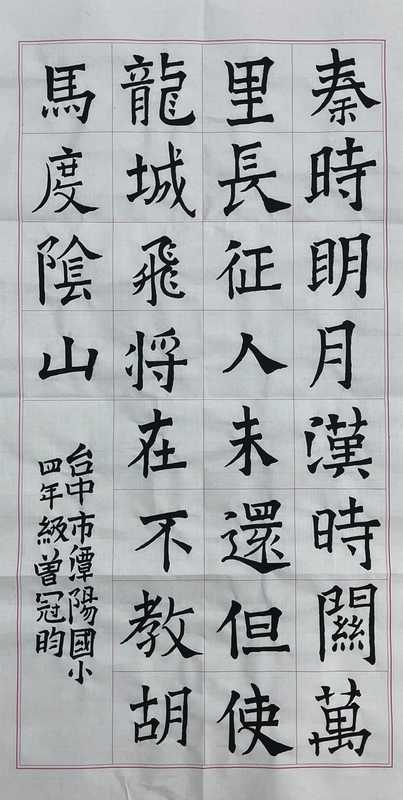 秦時明月漢時關萬
里長征人未還但使
龍城飛将在不教胡
馬度陰山
台中市潭陽國小
四年級曾冠昀